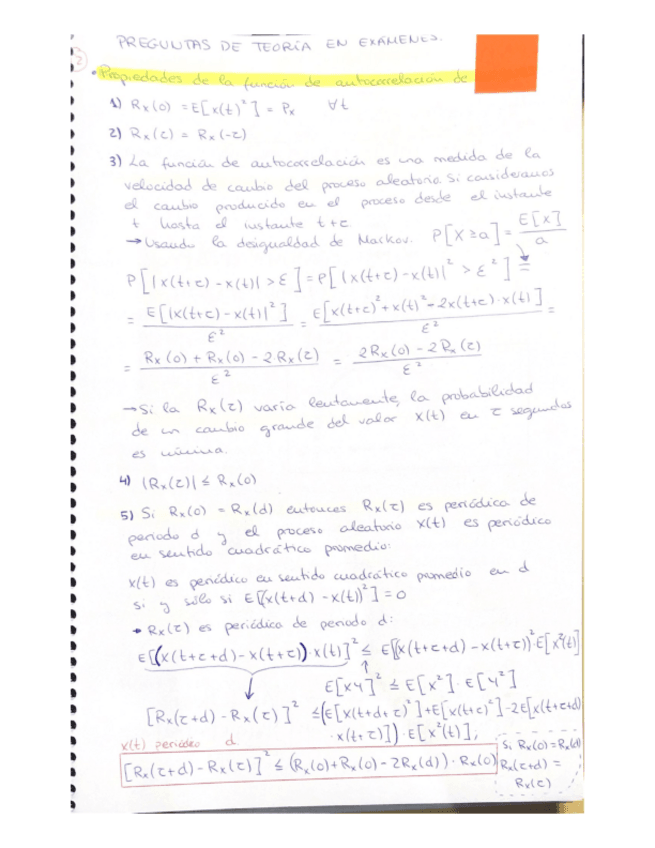 PREGUNTAS DE TEORÍA EN EXÁMENES.
2
• Propiedades de la función de autocorrelación de
1) Rx(0) = E[x(t)²] = Px ∀t
2) Rx(τ) = Rx(-τ)
3) La función de autocorrelación es una medida de la
velocidad de cambio del proceso aleatorio. Si consideramos
el cambio producido en el proceso desde el instante
t hasta el instante t+τ
→ Usando la desigualdad de Markov. P[X≥a] = E[x]/a
P[|x(t+τ) - x(t)| > ε] = P[|x(t+τ) - x(t)|² > ε²] =
= E[|x(t+τ) - x(t)|²]/ε² = E[x(t+τ)² + x(t)² - 2x(t+τ)·x(t)]/ε² =
= Rx(0) + Rx(0) - 2Rx(τ)/ε² = 2Rx(0) - 2Rx(τ)/ε²
→ Si la Rx(τ) varía lentamente, la probabilidad
de un cambio grande del valor X(t) en τ segundos
es mínima.
4) |Rx(τ)| ≤ Rx(0)
5) Si Rx(0) = Rx(d) entonces Rx(τ) es periódica de
periodo d y el proceso aleatorio X(t) es periódico
en sentido cuadrático promedio:
x(t) es periódico en sentido cuadrático promedio en d
si y sólo si E[(x(t+d) - x(t))²] = 0
• Rx(τ) es periódica de periodo d:
E[(x(t+τ+d) - x(t+τ))·x(t)]² ≤ E[(x(t+τ+d) - x(t+τ))²]·E[x²(t)]
E[xy]² ≤ E[x²]·E[y²]
[Rx(τ+d) - Rx(τ)]² ≤ (E[x(t+d+τ)²] + E[x(t+τ)²] - 2E[x(t+τ+d)
·x(t+τ)])·E[x²(t)];
x(t) periódico d
[Rx(τ+d) - Rx(τ)]² ≤ (Rx(0) + Rx(0) - 2Rx(d))·Rx(0)
Si Rx(0) = Rx(d)
Rx(τ+d) =
Rx(τ)